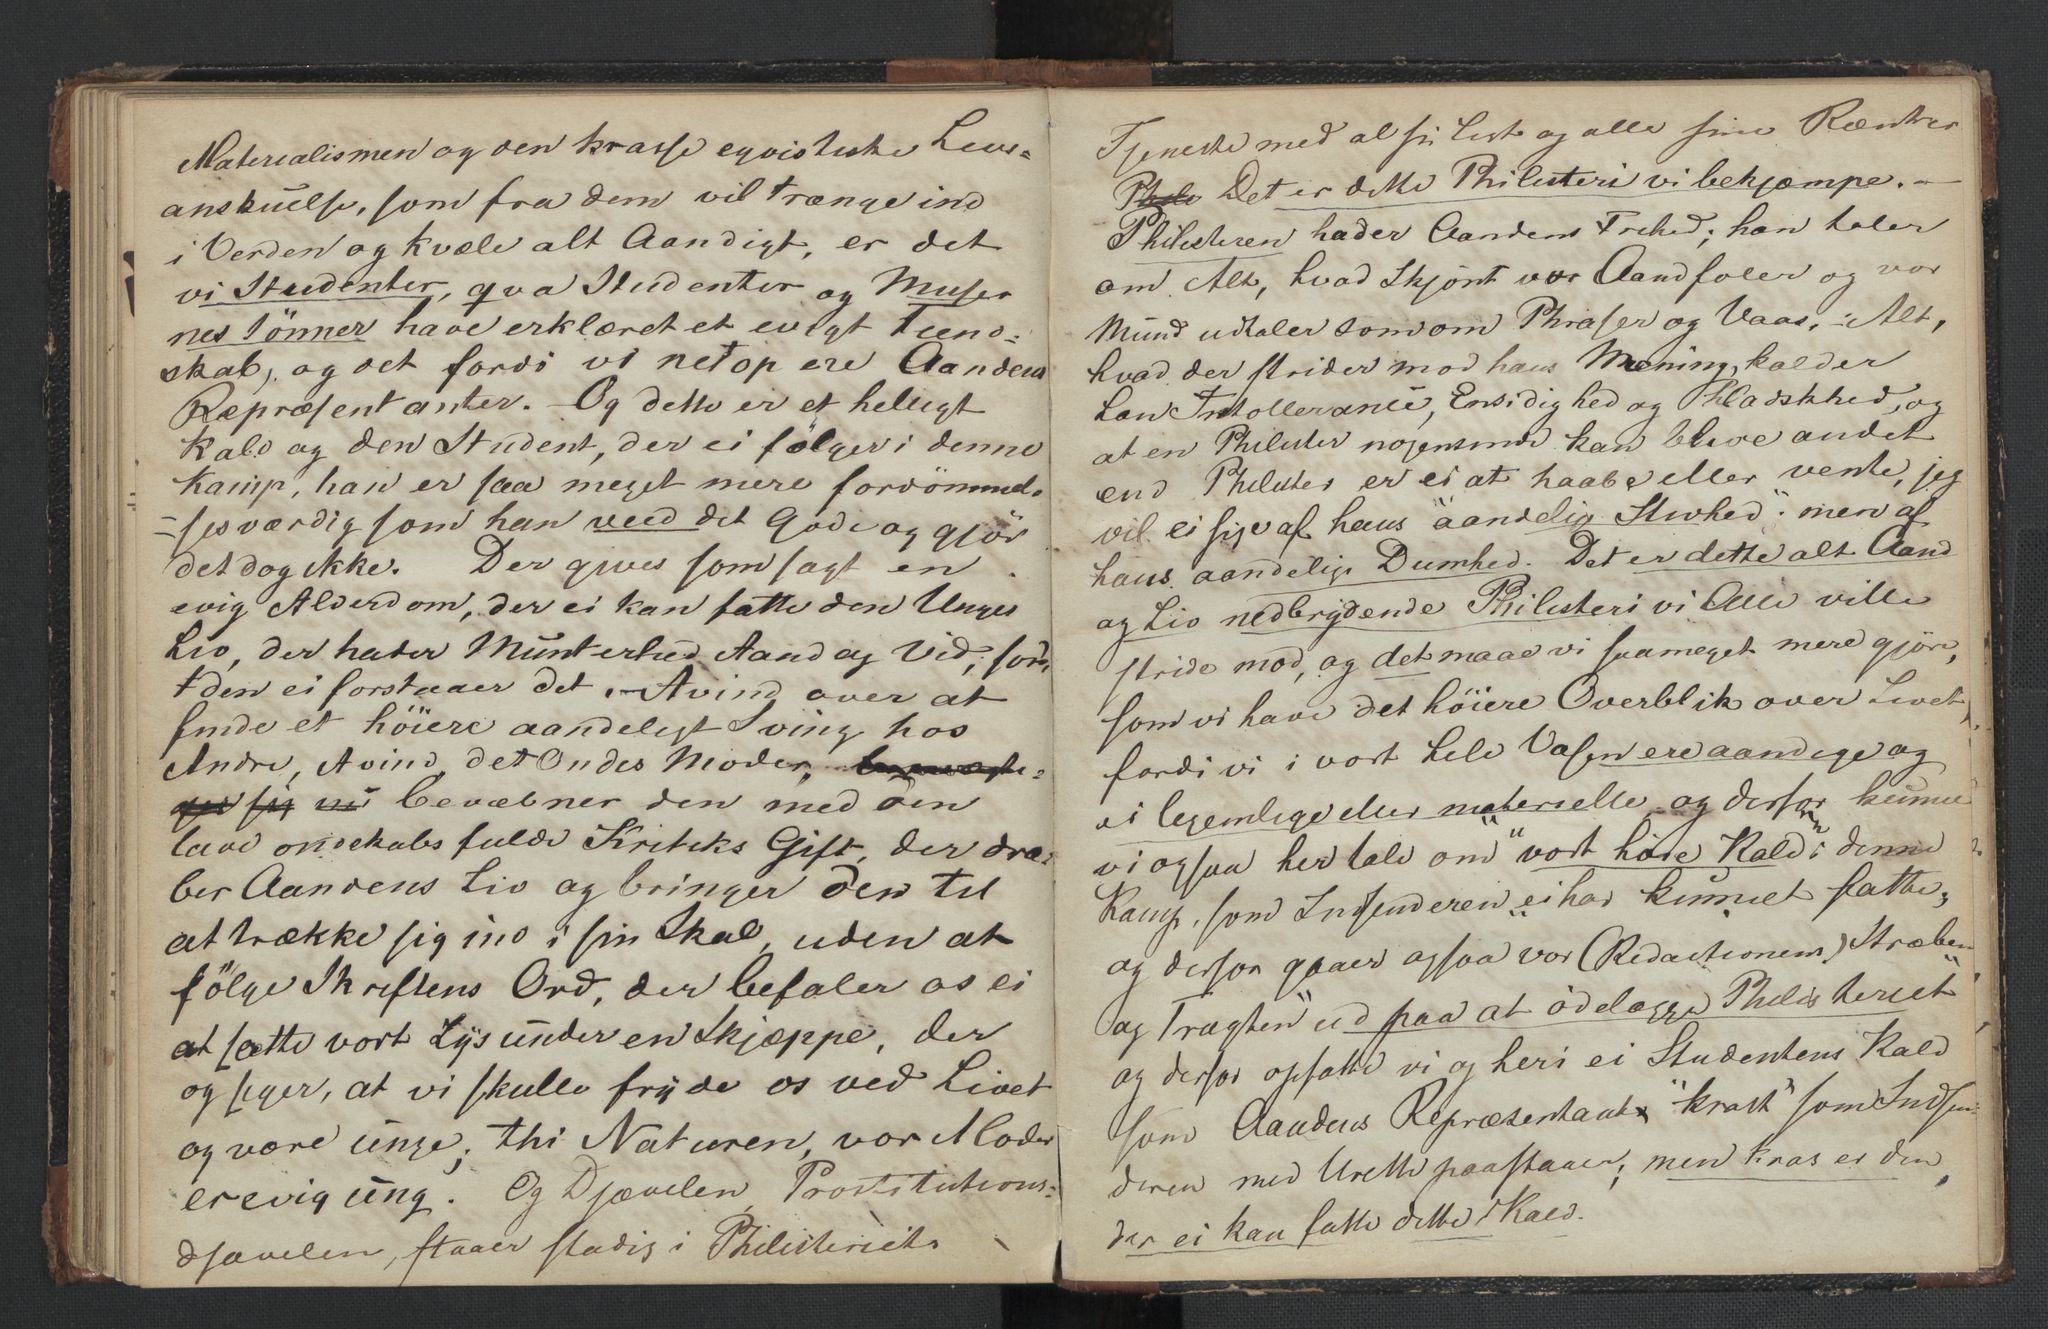 Materialismen og den krasse egoistiske Livs-
anskuelse, som fra dem vil trænge ind
i Verden og kvæle alt Aandigt, er det
vi Studenter, qva Studenter og Muser
nes Sönner have erklæret et evigt Fiend-
skab, og det fordi vi netop ere Aandens
Repræsentanter. – Og dette er et helligt
Kald og den Student, der ei fölger i denne
Kamp, han er saa meget mere fordömmel-
-sesværdig som han veed det Gode og gjör
det dog ikke. Der gives som sagt en
evig Alderdom, der ei kan fatte den Unges
Liv, der hader Munterhed Aand og Vid, fordi
den ei forstaaer det. – Avind over at
finde et höiere aandeligt Sving hos
Andre, Avind, det Ondes Moder,
sig nu bevæbner den med den
lave ondskabsfulde Kritiks Gift, der dræ-
ber Aandens Liv og bringer den til
at trække sig ind i sin Skal, uden at
fölge Skriftens Ord, der befaler os ei
at sætte vort Lys under en Skjæppe, der
og siger, at vi skulle fryde os ved Livet
og være unge; thi Naturen, vor Moder
er evig ung. Og Djævelen, Prostitutions-
djævelen, staaer stadig i Philisteriets
Tjeneste med al sin List og alle sine Rænker
Phile Det er dette Philisteri vi bekjæmpe. –
Philisteren hader Aandens Frihed; han taler
om Alt, hvad Skjönt vor Aand foler og vor
Mund udtaler som om Phraser og Vaas, – Alt,
hvad der strider mod hans Mening, kalder
han Intollerance, Ensidighed og Pladskhed, og
at en Philister nogensinde kan blive andet
end Philister er ei at haabe eller vente, jeg
vil ei sige af hans "aandelig Stivhed": men af
hans aandelige Dumhed. Det er dette alt Aand
og Liv nedbrydende Philisteri vi Alle ville
stride mod, og det maae vi saameget mere gjöre,
som vi have det höiere Overblik over Livet,
fordi vi i vort hele Væsen ere aandige og
ei legemlige eller materielle og derfor kunne
vi ogsaa her tale om "vort höie Kald" i denne
Kamp, som Indsenderen "ei har kunnet fatte";
og derfor gaaer ogsaa vor (Redactionens) Stræben
og Tragten "ud paa at ödelægge Philisteriet"
og derfor opfatte vi og heri ei Studentens Kald
som Aandens Repræsentant "krast" som Indsen-
deren med Urette paastaaer; men kras er den,
der ei kan fatte dette Kald.